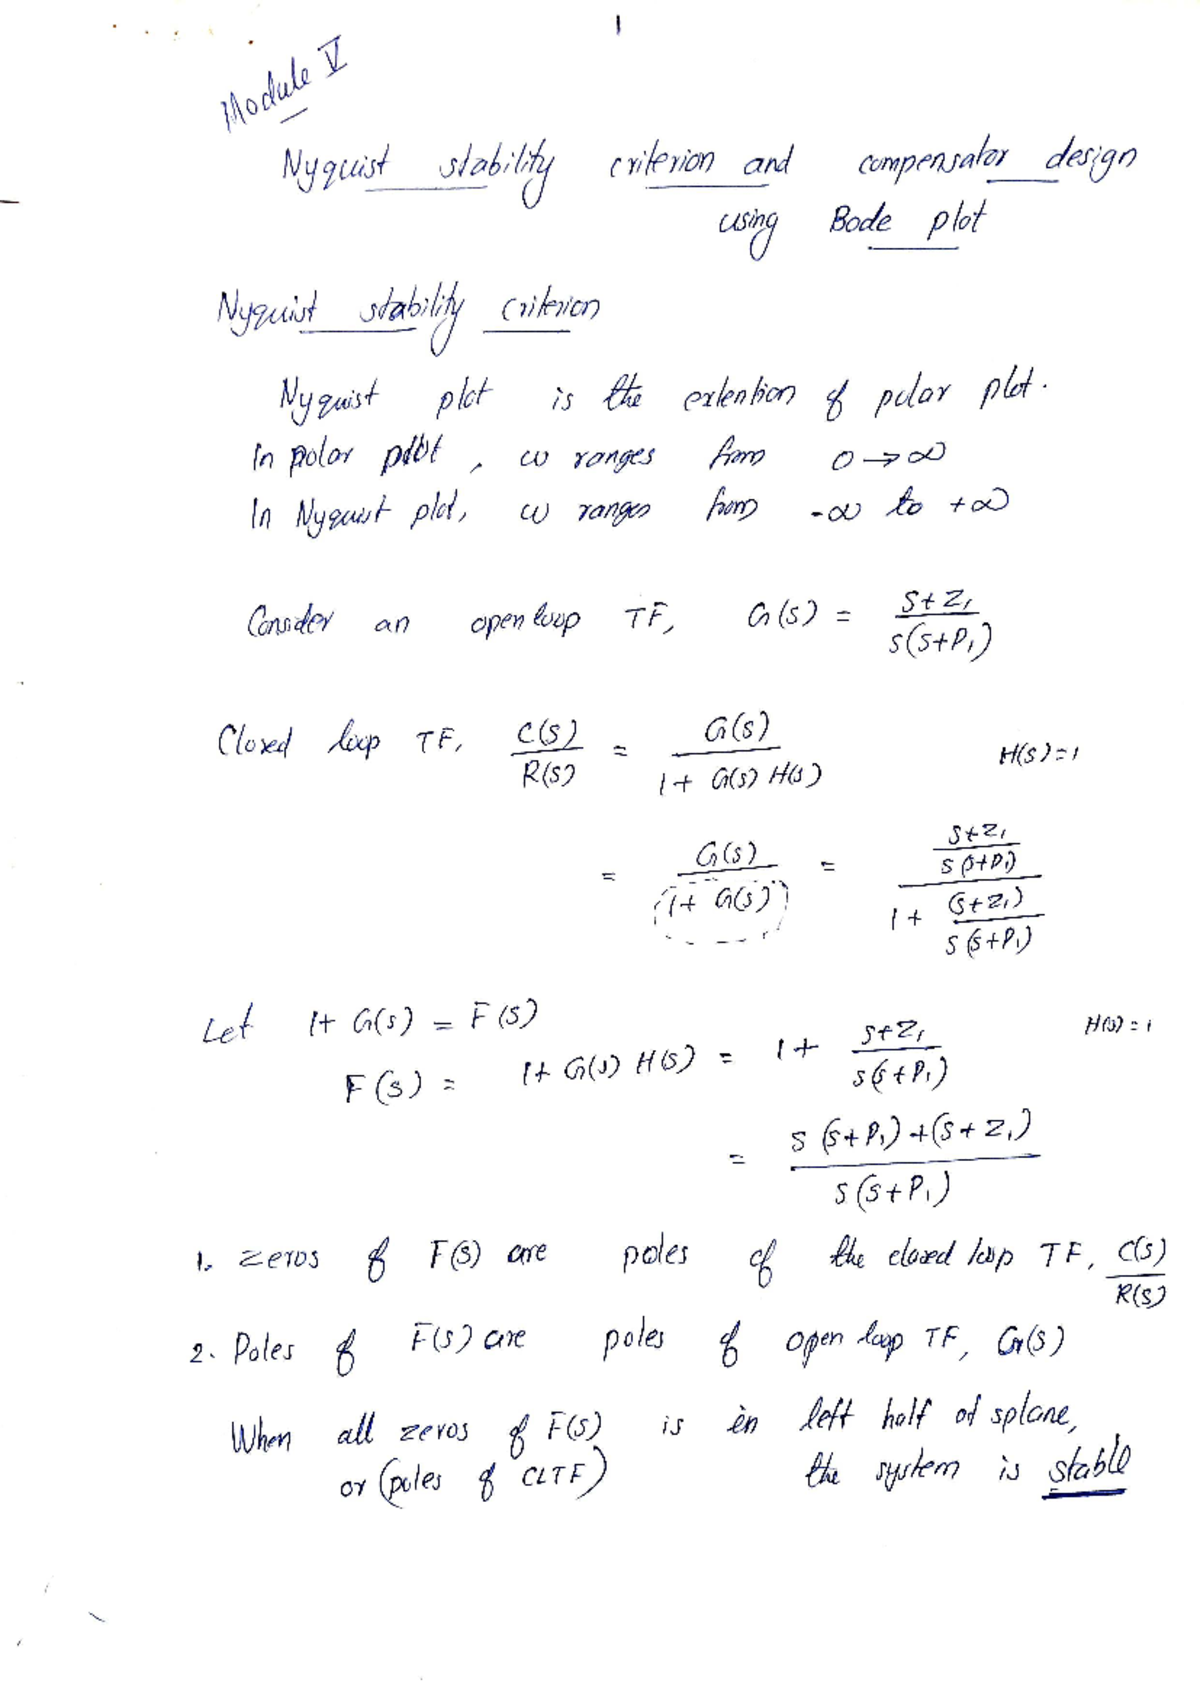 1
Module V
Nyquist stability criterion and compensator design
using Bode plot
Nyquist stability criterion
Nyquist plot is the extention of polar plot.
In polar plot, ω ranges from 0 → ∞
In Nyquist plot, ω ranges from -∞ to +∞
Consider an open loop TF, G(s) = (s+z₁)/(s(s+P₁))
Closed loop TF, C(s)/R(s) = G(s)/(1+ G(s) H(s)) H(s)=1
= G(s)/(1+ G(s)) = ((s+z₁)/(s(s+P₁)))/(1+ (s+z₁)/(s(s+P₁)))
Let 1+ G(s) = F(s)
F(s) = 1+ G(s) H(s) = 1+ (s+z₁)/(s(s+P₁)) H(s) = 1
= (s(s+P₁)+(s+z₁))/(s(s+P₁))
1. Zeros of F(s) are poles of the closed loop TF, C(s)/R(s)
2. Poles of F(s) are poles of open loop TF, G(s)
When all zeros of F(s) is in left half of splane,
or (poles of CLTF) the system is stable